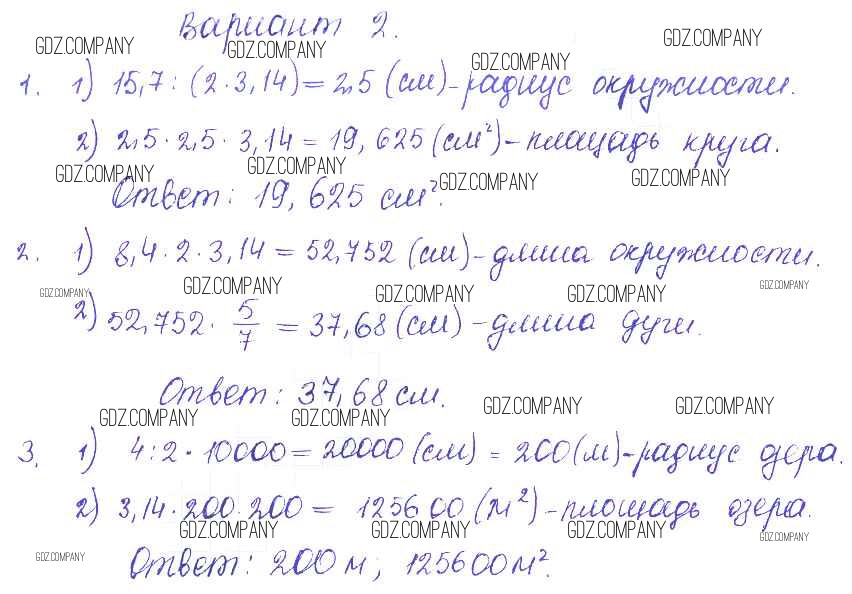 Вариант 2.
GDZ.COMPANY GDZ.COMPANY GDZ.COMPANY GDZ.COMPANY
1. 1) 15,7 : (2 · 3,14) = 2,5 (см) - радиус окружности.
2) 2,5 · 2,5 · 3,14 = 19,625 (см²) - площадь круга.
GDZ.COMPANY GDZ.COMPANY GDZ.COMPANY GDZ.COMPANY
Ответ: 19,625 см².
2. 1) 8,4 · 2 · 3,14 = 52,752 (см) - длина окружности.
GDZ.COMPANY GDZ.COMPANY GDZ.COMPANY GDZ.COMPANY GDZ.COMPANY
2) 52,752 · 5/7 = 37,68 (см) - длина дуги.
Ответ: 37,68 см.
GDZ.COMPANY GDZ.COMPANY GDZ.COMPANY GDZ.COMPANY
3. 1) 4 : 2 · 10000 = 20000 (см) = 200 (м) - радиус озера.
2) 3,14 · 200 · 200 = 125600 (м²) - площадь озера.
GDZ.COMPANY GDZ.COMPANY GDZ.COMPANY GDZ.COMPANY GDZ.COMPANY
Ответ: 200 м; 125600 м².